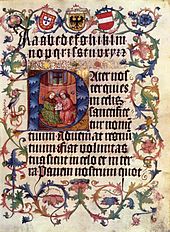 A a a b c d e f g h i k l m
Pater nos
ter qui es
in celis
sanctifice
tur nomē
tuum Adueniat regnū
tuum fiat voluntas
tua sicut in celo et in ter
ra Panem nostrum quot